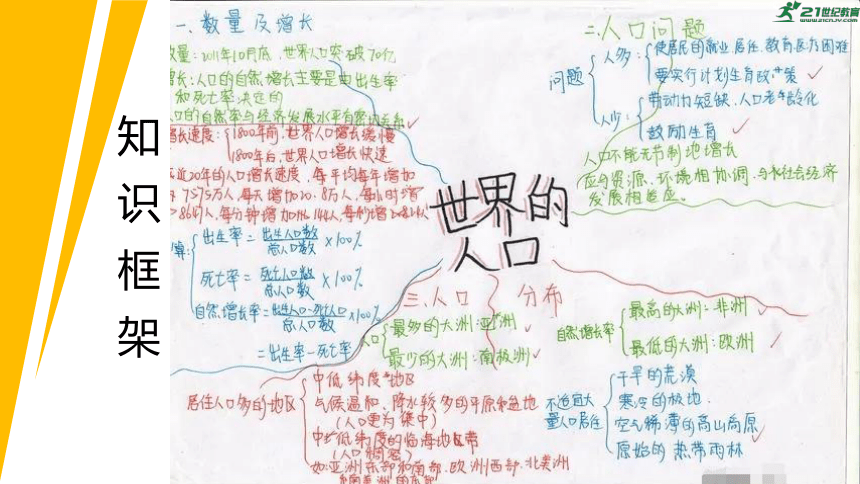 知识框架
21世纪教育
www.21cnjy.com
一、数量及增长
数量：2011年10月底，世界人口突破70亿
增长：人口的自然增长主要是由出生率
和死亡率决定的
人口的自然率与经济发展水平有密切关系
增长速度：1800年前，世界人口增长缓慢
1800年后，世界人口增长快速
近20年的人口增长速度，每平均每年增加
7575万人，每天增加20.8万人，每小时增
8647人，每分钟增加 144人，每秒增
出生率＝出生人口数/总人口数×100%
死亡率＝死亡人口数/总人口数×100%
自然增长率＝出生人口-死亡人口/总人口数×100%
＝出生率-死亡率
二、人口问题
问题
人多：使居民的就业居住、教育医疗困难
要实行计划生育政策
人少：劳动力短缺、人口老龄化
鼓励生育
人口不能无节制地增长
应与资源、环境相协调、与社会经济
发展相适应。
世界的
人口
三、人口 分布
人口
最多的大洲：亚洲
最少的大洲：南极洲
自然增长率
最高的大洲：非洲
最低的大洲：欧洲
居住人口多的地区
中低纬度地区
气候温和、降水较多的平原和盆地
（人口更为集中）
中低纬度的临海地区带
（人口稠密）
如：亚洲东部和南部、欧洲西部、北美洲
和南美洲的东部
不适宜大
量人口居住
干旱的荒漠
寒冷的极地
空气稀薄的高山高原
原始的热带雨林